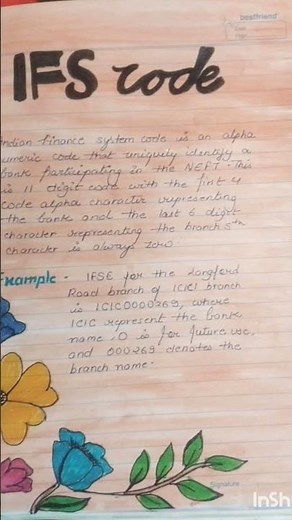 bestfriend
Date
Page
IFS code
Indian finance system code is an alpha
umeric code that uniquily identify a
bank participating in the NEFT. This
is 11 digit code with the first 4
code alpha character representing
the bank and the last 6 digit
character representing the branch 5th
character is always zero
Example - IFSE for the Langford
Road branch of ICICI branch
is ICIC0000269, where
ICIC represent the bank
name, 0 is for future use,
and 000269 denotes the
branch name.
Signature
InSh